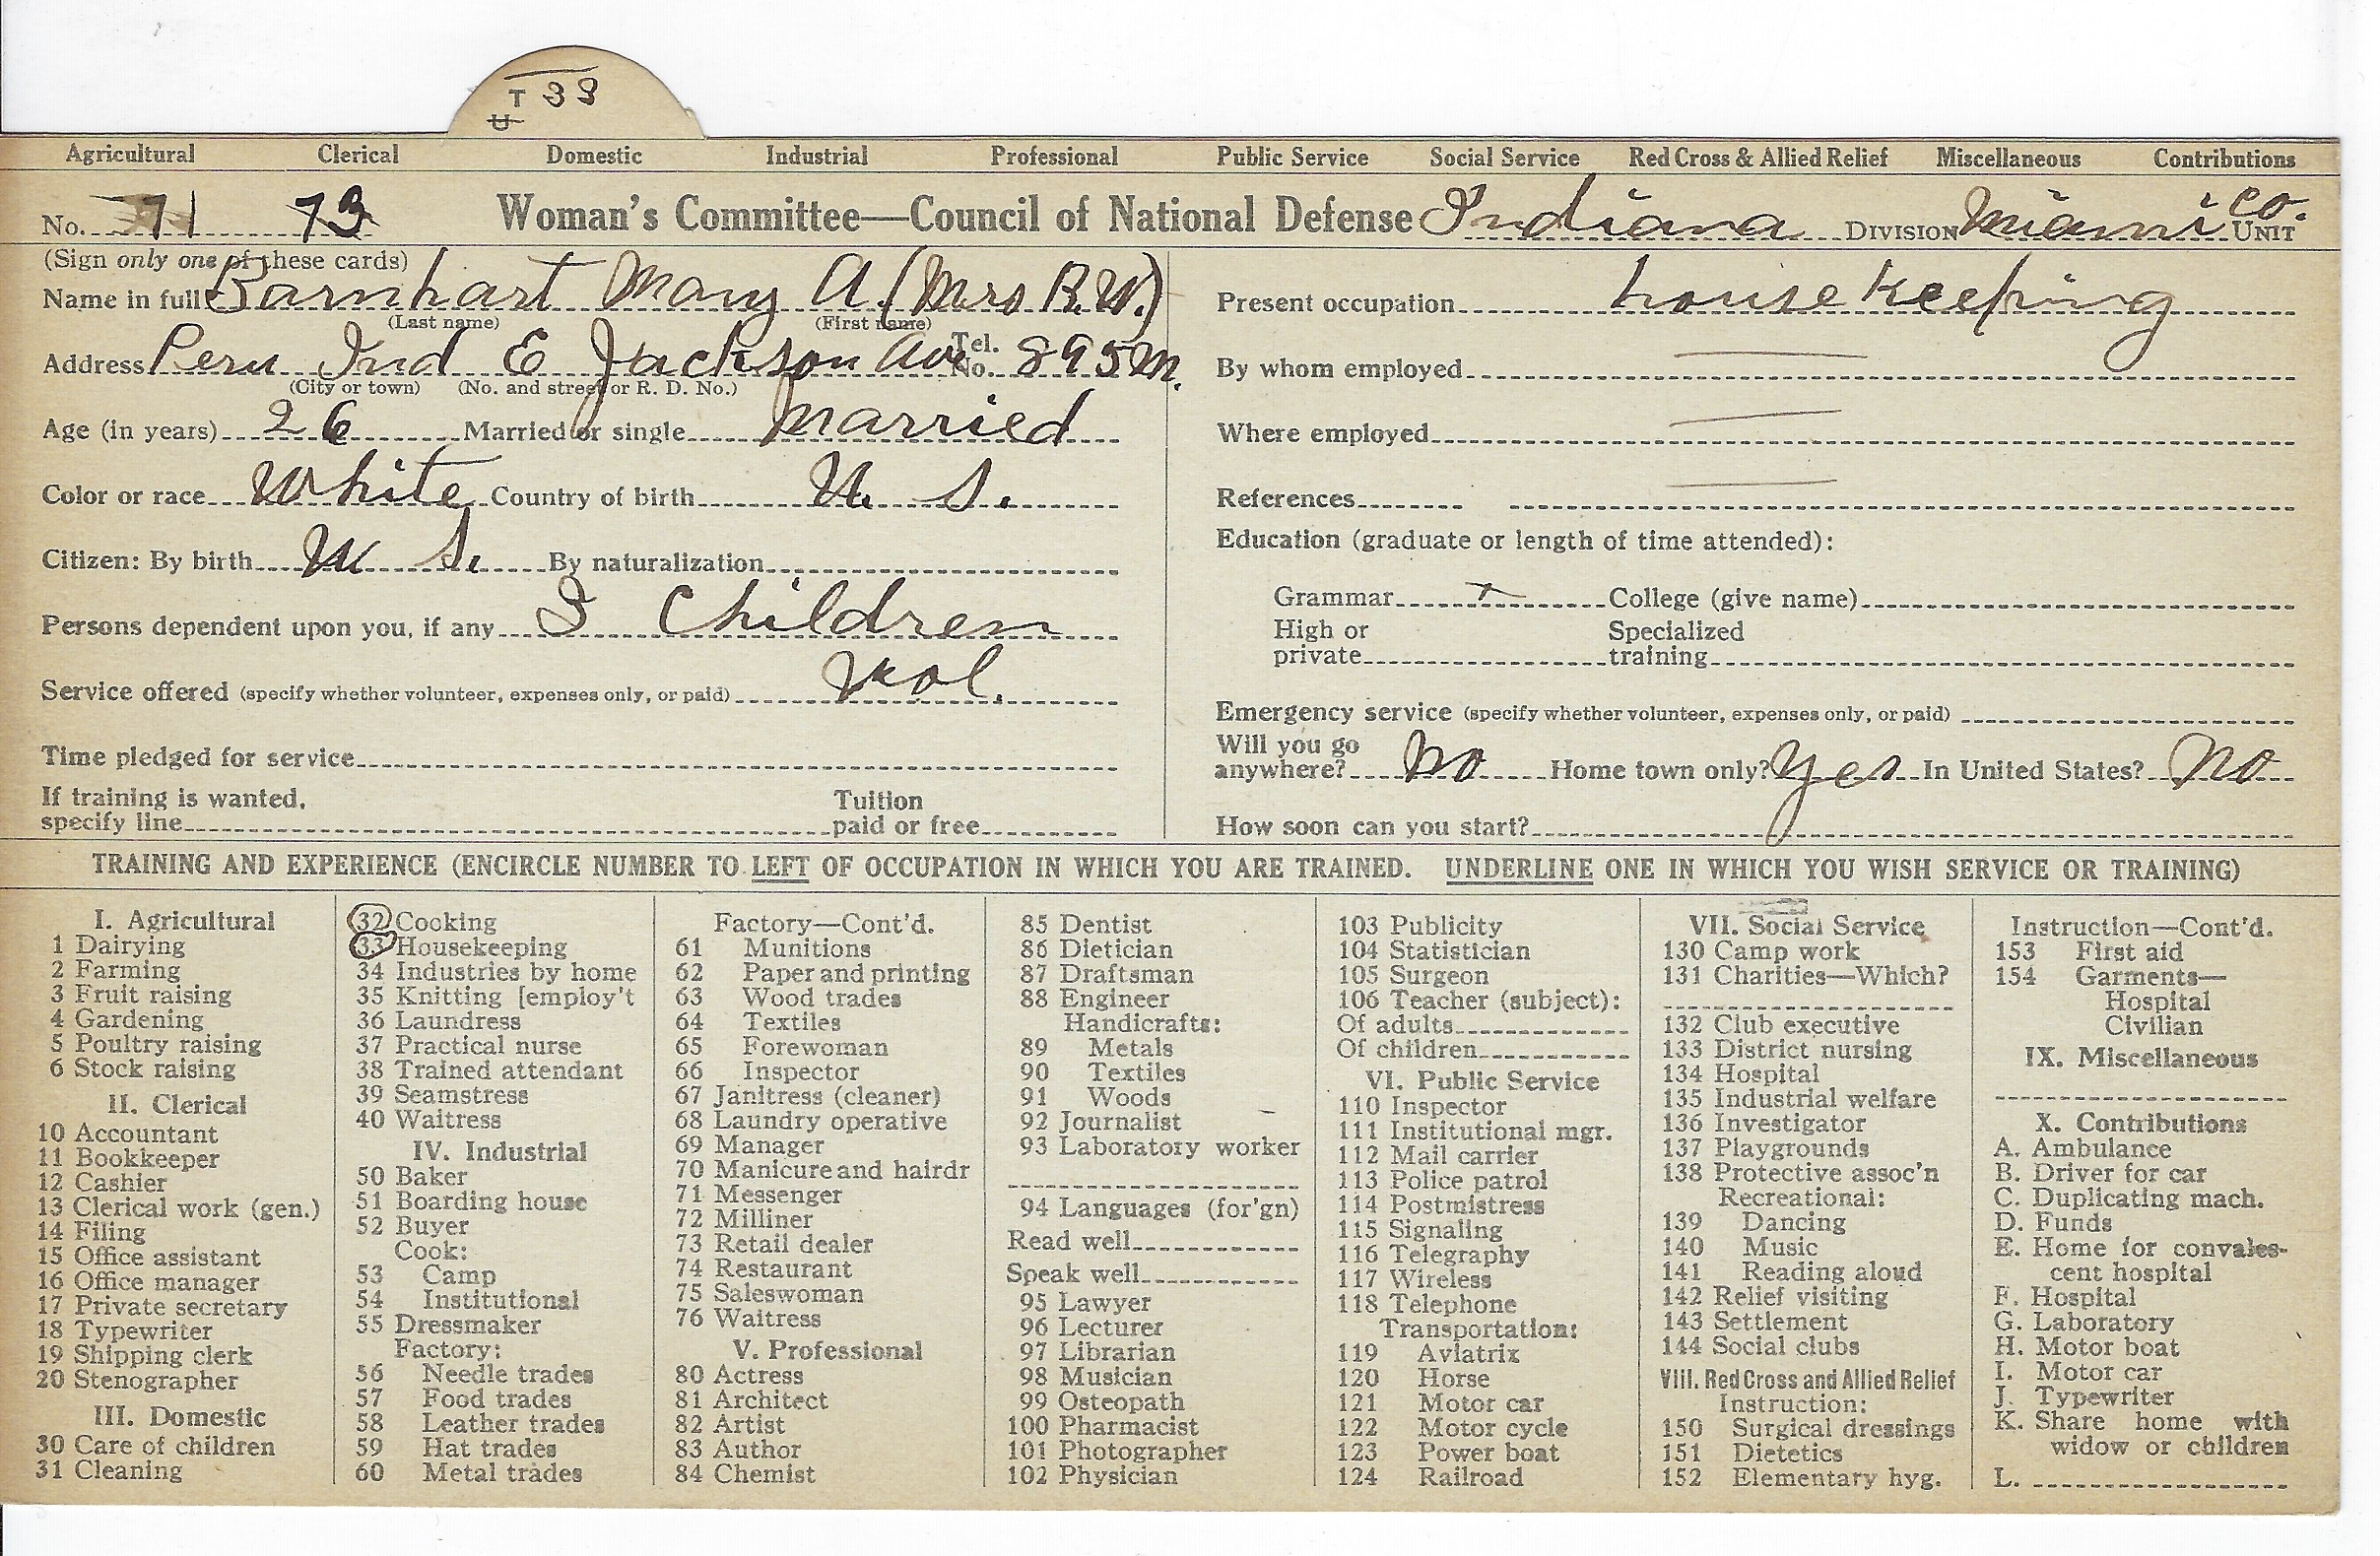 T 33
U
Agricultural Clerical Domestic Industrial Professional Public Service Social Service Red Cross & Allied Relief Miscellaneous Contributions
No. 71 73 Woman's Committee—Council of National Defense Indiana DIVISION Miami Co. UNIT
(Sign only one of these cards)
Name in full Barnhart Mary A. (Mrs R.W.)
(Last name) (First name)
Address Peru Ind E Jackson Ave Tel. No. 895 M.
(City or town) (No. and street or R. D. No.)
Age (in years) 26 Married or single married
Color or race White Country of birth U. S.
Citizen: By birth U. S. By naturalization
Persons dependent upon you, if any 3 Children
Service offered (specify whether volunteer, expenses only, or paid) vol.
Time pledged for service
If training is wanted, specify line Tuition paid or free
Present occupation housekeeping
By whom employed
Where employed
References
Education (graduate or length of time attended):
Grammar College (give name)
High or private Specialized training
Emergency service (specify whether volunteer, expenses only, or paid)
Will you go anywhere? No Home town only? yes In United States? No
How soon can you start?
TRAINING AND EXPERIENCE (ENCIRCLE NUMBER TO LEFT OF OCCUPATION IN WHICH YOU ARE TRAINED. UNDERLINE ONE IN WHICH YOU WISH SERVICE OR TRAINING)
I. Agricultural
1 Dairying
2 Farming
3 Fruit raising
4 Gardening
5 Poultry raising
6 Stock raising
II. Clerical
10 Accountant
11 Bookkeeper
12 Cashier
13 Clerical work (gen.)
14 Filing
15 Office assistant
16 Office manager
17 Private secretary
18 Typewriter
19 Shipping clerk
20 Stenographer
III. Domestic
30 Care of children
31 Cleaning
32 Cooking
33 Housekeeping
34 Industries by home
35 Knitting [employ't
36 Laundress
37 Practical nurse
38 Trained attendant
39 Seamstress
40 Waitress
IV. Industrial
50 Baker
51 Boarding house
52 Buyer
Cook:
53 Camp
54 Institutional
55 Dressmaker
Factory:
56 Needle trades
57 Food trades
58 Leather trades
59 Hat trades
60 Metal trades
Factory—Cont'd.
61 Munitions
62 Paper and printing
63 Wood trades
64 Textiles
65 Forewoman
66 Inspector
67 Janitress (cleaner)
68 Laundry operative
69 Manager
70 Manicure and hairdr
71 Messenger
72 Milliner
73 Retail dealer
74 Restaurant
75 Saleswoman
76 Waitress
V. Professional
80 Actress
81 Architect
82 Artist
83 Author
84 Chemist
85 Dentist
86 Dietician
87 Draftsman
88 Engineer
Handicrafts:
89 Metals
90 Textiles
91 Woods
92 Journalist
93 Laboratory worker
94 Languages (for'gn)
Read well
Speak well
95 Lawyer
96 Lecturer
97 Librarian
98 Musician
99 Osteopath
100 Pharmacist
101 Photographer
102 Physician
103 Publicity
104 Statistician
105 Surgeon
106 Teacher (subject):
Of adults
Of children
VI. Public Service
110 Inspector
111 Institutional mgr.
112 Mail carrier
113 Police patrol
114 Postmistress
115 Signaling
116 Telegraphy
117 Wireless
118 Telephone
Transportation:
119 Aviatrix
120 Horse
121 Motor car
122 Motor cycle
123 Power boat
124 Railroad
VII. Social Service
130 Camp work
131 Charities—Which?
132 Club executive
133 District nursing
134 Hospital
135 Industrial welfare
136 Investigator
137 Playgrounds
138 Protective assoc'n
Recreational:
139 Dancing
140 Music
141 Reading aloud
142 Relief visiting
143 Settlement
144 Social clubs
VIII. Red Cross and Allied Relief
Instruction:
150 Surgical dressings
151 Dietetics
152 Elementary hyg.
Instruction—Cont'd.
153 First aid
154 Garments—
Hospital
Civilian
IX. Miscellaneous
X. Contributions
A. Ambulance
B. Driver for car
C. Duplicating mach.
D. Funds
E. Home for convales-
cent hospital
F. Hospital
G. Laboratory
H. Motor boat
I. Motor car
J. Typewriter
K. Share home with
widow or children
L.